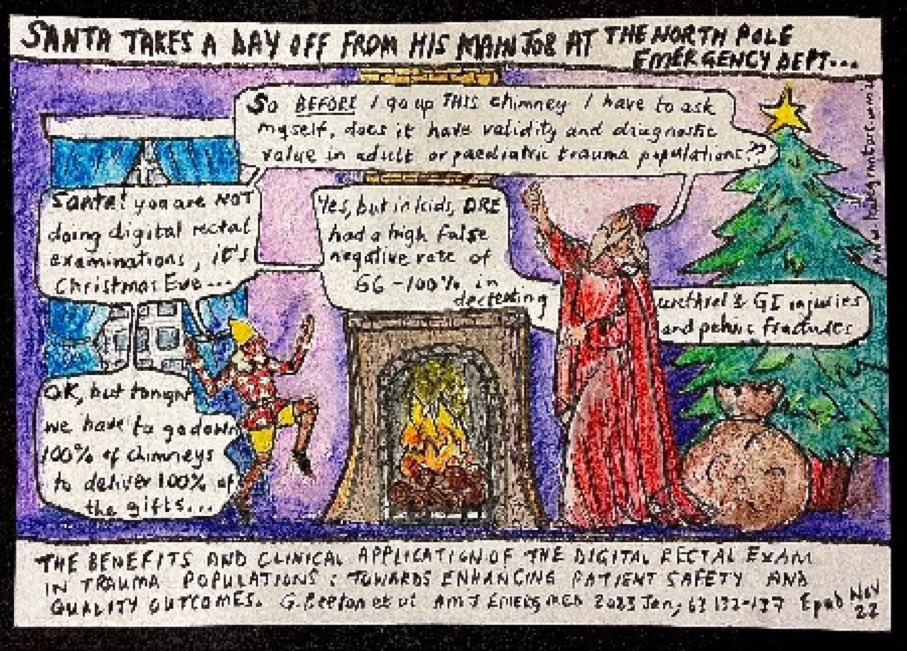 SANTA TAKES A DAY OFF FROM HIS MAIN JOB AT THE NORTH POLE
EMERGENCY DEPT...
So BEFORE I go up THIS chimney I have to ask
myself, does it have validity and diagnostic
value in adult or paediatric trauma populations??
Santa! you are NOT
doing digital rectal
examinations, it's
Christmas Eve...
Yes, but in kids, DRE
had a high false
negative rate of
66-100% in
detecting
urethral & GI injuries
and pelvic fractures
OK, but tonight
we have to go down
100% of chimneys
to deliver 100% of
the gifts...
THE BENEFITS AND CLINICAL APPLICATION OF THE DIGITAL RECTAL EXAM
IN TRAUMA POPULATIONS: TOWARDS ENHANCING PATIENT SAFETY AND
QUALITY OUTCOMES. G. Beeton et al Am J Emerg Med 2023 Jan; 63 132-137 Epub Nov
22